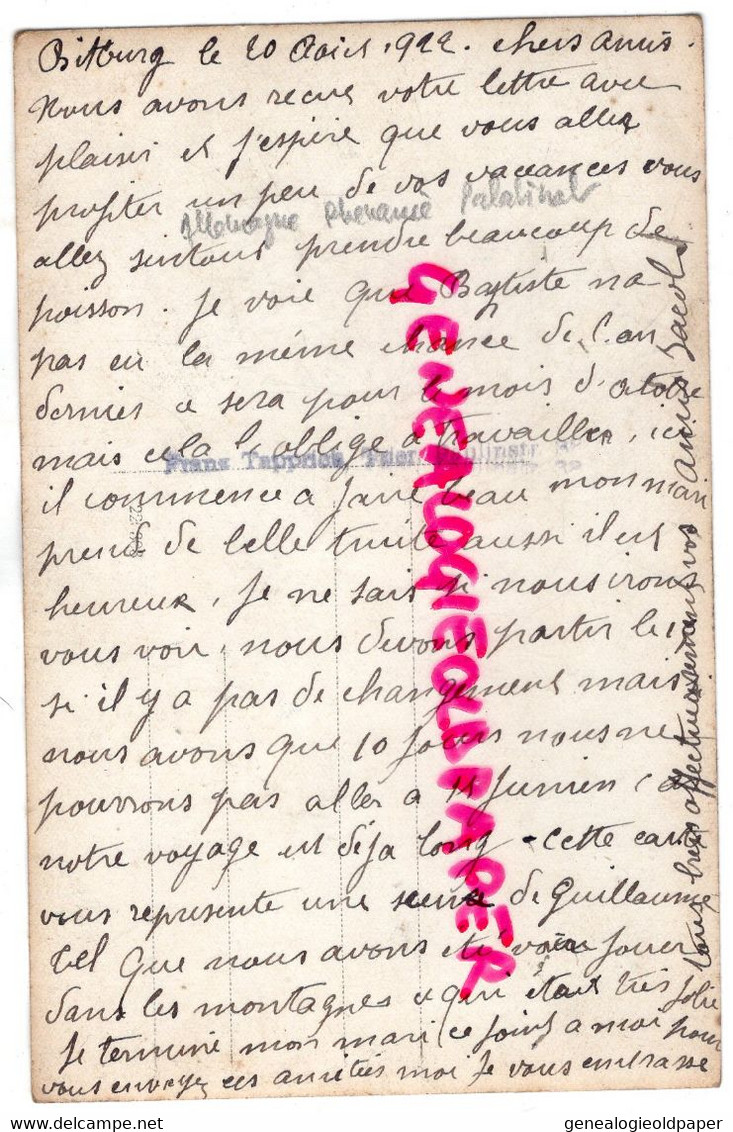 Bitburg le 20 Aout 1922. chers amis.
Nous avons recue votre lettre avec
plaisir et j'espère que vous allez
profiter un peu de vos vaccances vous
Allemagne Rhenanie Palatinat
allez surtout prendre beaucoup de
poisson. Je voie que Baptiste na
pas eu la même chance de l'an
dernier ce sera pour le mois d'octobre
mais cela l'oblige a travailler, ici
Franz Tapprich, Trier, Paulinstr
il commence a faire beau mon mari
prend de belle truite aussi il est
heureux, Je ne sais si nous irons
vous voir, nous devons partir le
si il y a pas de changement mais
nous avons que 10 jours nous ne
pouvrons pas aller a St Junien
notre voyage est déja long - cette carte
vous represente une scene de Guillaume
Tel que nous avons été voir jouer
dans les montagnes et qui était très jolie
Je termine mon mari ce joint a moi pour
vous envoyez ces amitiés moi Je vous embrasse
tous bien affectueusement vos amis Jacob
GENEALOGIEOLDPAPER
genealogieoldpaper